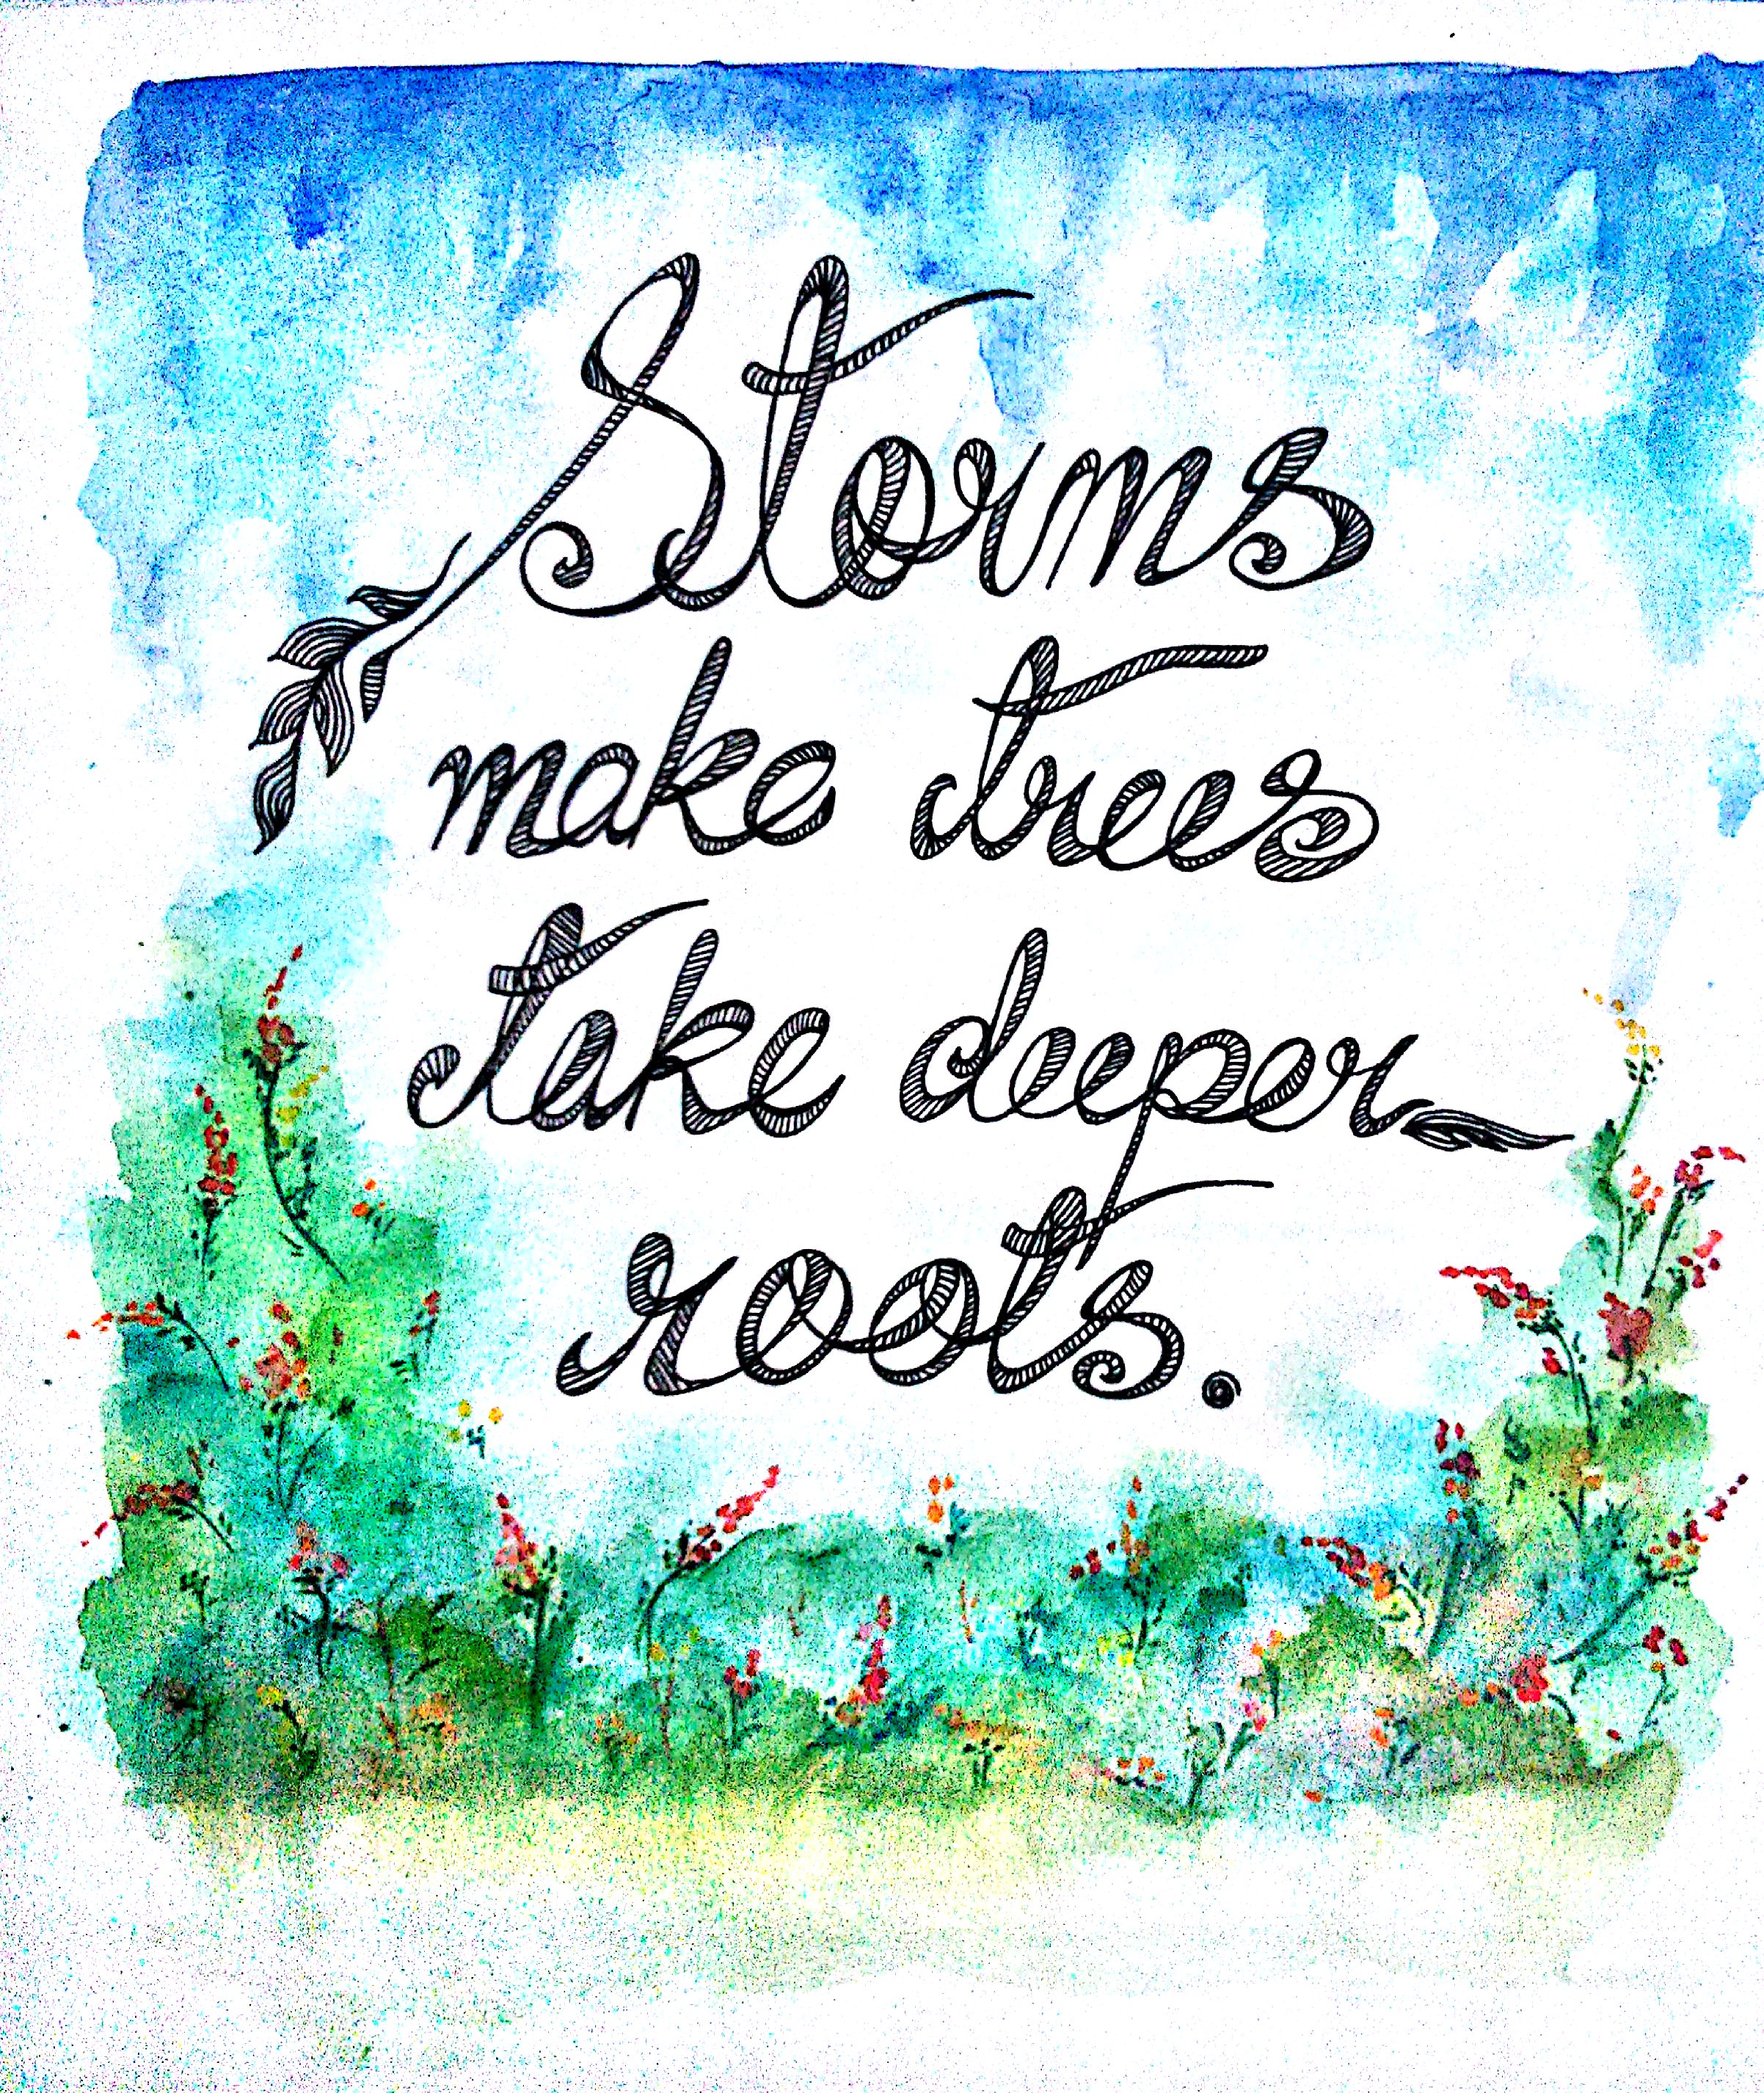 Storms
make trees
take deeper
roots.